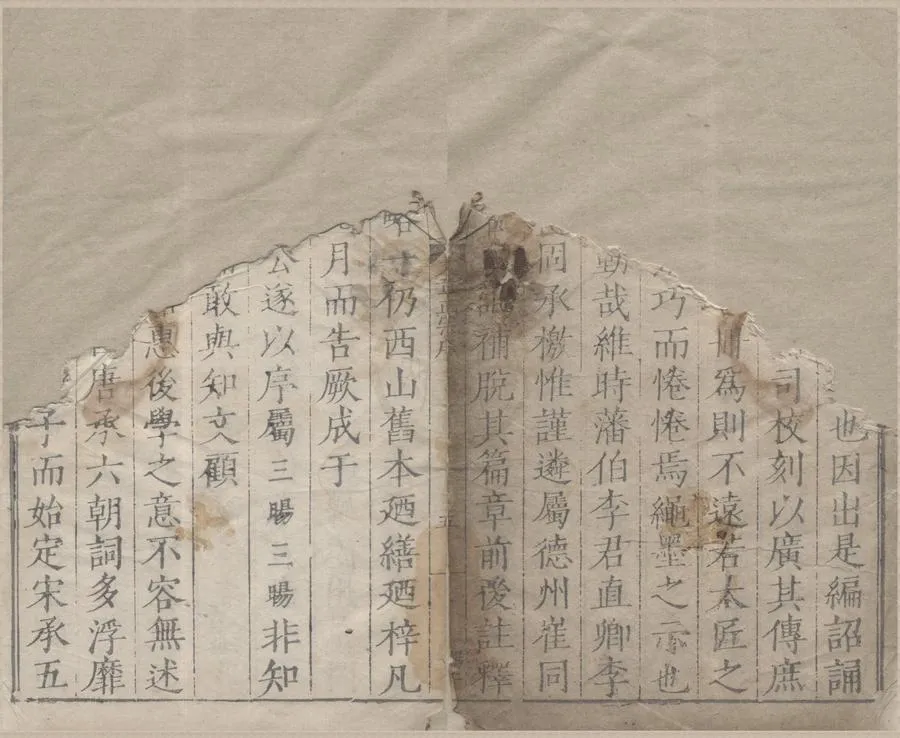 也因出是編詔誦
司校刻以廣其傳庶
爲則不遠若大匠之
巧而惓惓焉繩墨之示也
哉維時藩伯李君直卿李
同承檄惟謹遴屬德州崔同
補脫其篇章前後註釋
五
仍西山舊本廼繕廼梓凡
月而告厥成于
公遂以序屬三暘三暘非知
敢與知文顧
惠後學之意不容無述
唐承六朝詞多浮靡
子而始定宋承五